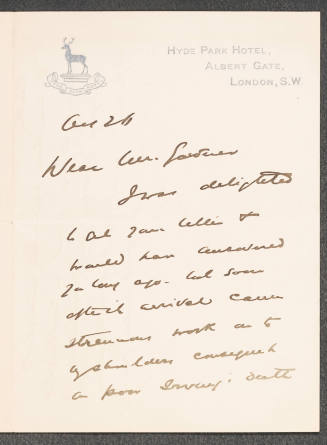 HYDE PARK HOTEL,
ALBERT GATE,
LONDON, S.W.
Dear Mr. Gardner
I was delighted
to get your letter &
would have answered
you long ago - but soon
after it arrival came
strenuous work on to
my shoulders consequent
on poor Irving's death